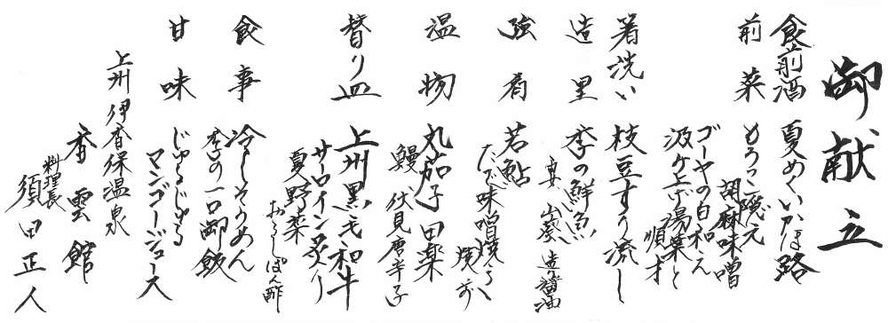 御献立
食前酒 夏めくいかほ路
前菜 もろっこ隠元
胡麻味噌
ゴーヤの白和え
汲み上げ湯葉と
順才
箸洗い 枝豆すり流し
造里 季の鮮魚
真山葵 造醤油
強肴 若鮎
たで味噌焼き
温物 丸茄子田楽
鰻 伏見唐辛子
替り皿 上州黒毛和牛
サーロイン炙り
夏野菜
おろしぽん酢
食事 冷しそうめん
季の一口御飯
甘味 じゅるじゅる
マンゴージュース
上州伊香保温泉
香雲館
料理長
須田正人